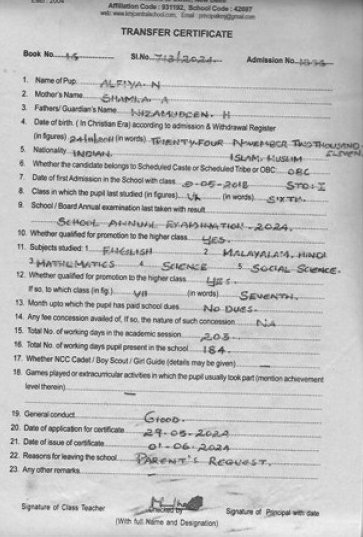 Affiliation Code : 931192, School Code : 42697
TRANSFER CERTIFICATE
Book No. 15 Sl.No. 713/2024 Admission No.
1. Name of Pupil ALFIYA. N
2. Mother's Name SHAMLA. A
3. Fathers/ Guardian's Name NIZAMUDEEN. H
4. Date of birth. ( In Christian Era) according to admission & Withdrawal Register
(in figures) 24/11/2011 (in words) TWENTY-FOUR NOVEMBER TWO THOUSAND ELEVEN.
5. Nationality INDIAN. ISLAM, MUSLIM
6. Whether the candidate belongs to Scheduled Caste or Scheduled Tribe or OBC: OBC
7. Date of first Admission in the School with class -05-2018 STD: I
8. Class in which the pupil last studied (in figures) VI (in words) SIXTH.
9. School / Board Annual examination last taken with result
SCHOOL ANNUAL EXAMINATION - 2024.
10. Whether qualified for promotion to the higher class YES.
11. Subjects studied: 1. ENGLISH 2 MALAYALAM, HINDI
3. MATHEMATICS 4. SCIENCE 5 SOCIAL SCIENCE.
12. Whether qualified for promotion to the higher class YES.
If so, to which class (in fig.) VII (in words) SEVENTH.
13. Month upto which the pupil has paid school dues NO DUES.
14. Any fee concession availed of, If so, the nature of such concession NA
15. Total No. of working days in the academic session 203.
16. Total No. of working days pupil present in the school 184.
17. Whether NCC Cadet / Boy Scout / Girl Guide (details may be given) —
18. Games played or extracurricular activities in which the pupil usually took part (mention achievement
level therein) —
19. General conduct GOOD.
20. Date of application for certificate 29-05-2024
21. Date of issue of certificate 01-06-2024
22. Reasons for leaving the school PARENT'S REQUEST.
23. Any other remarks —
Signature of Class Teacher Checked by Signature of Principal with date
(With full Name and Designation)